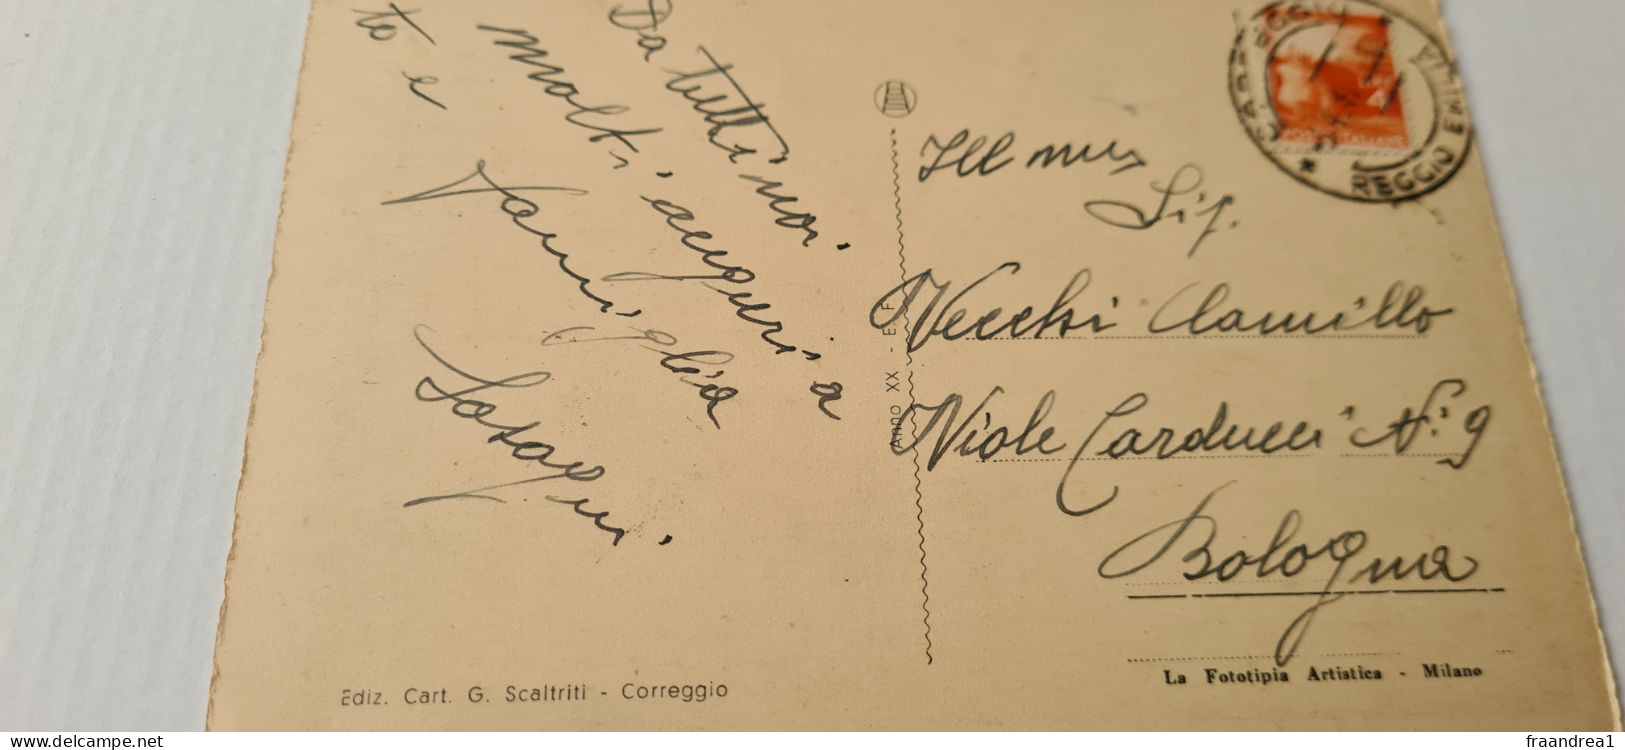 Da tutti noi.
molti auguri a
te e
Famiglia
Ill mus
Sig.
Vecchi Camillo
Viale Carducci N. 9
Bologna
CORREGGIO
REGGIO EMILIA
Anno XX - E. F.
Ediz. Cart. G. Scaltriti - Correggio
La Fototipia Artistica - Milano
www.delcampe.net
fraandrea1